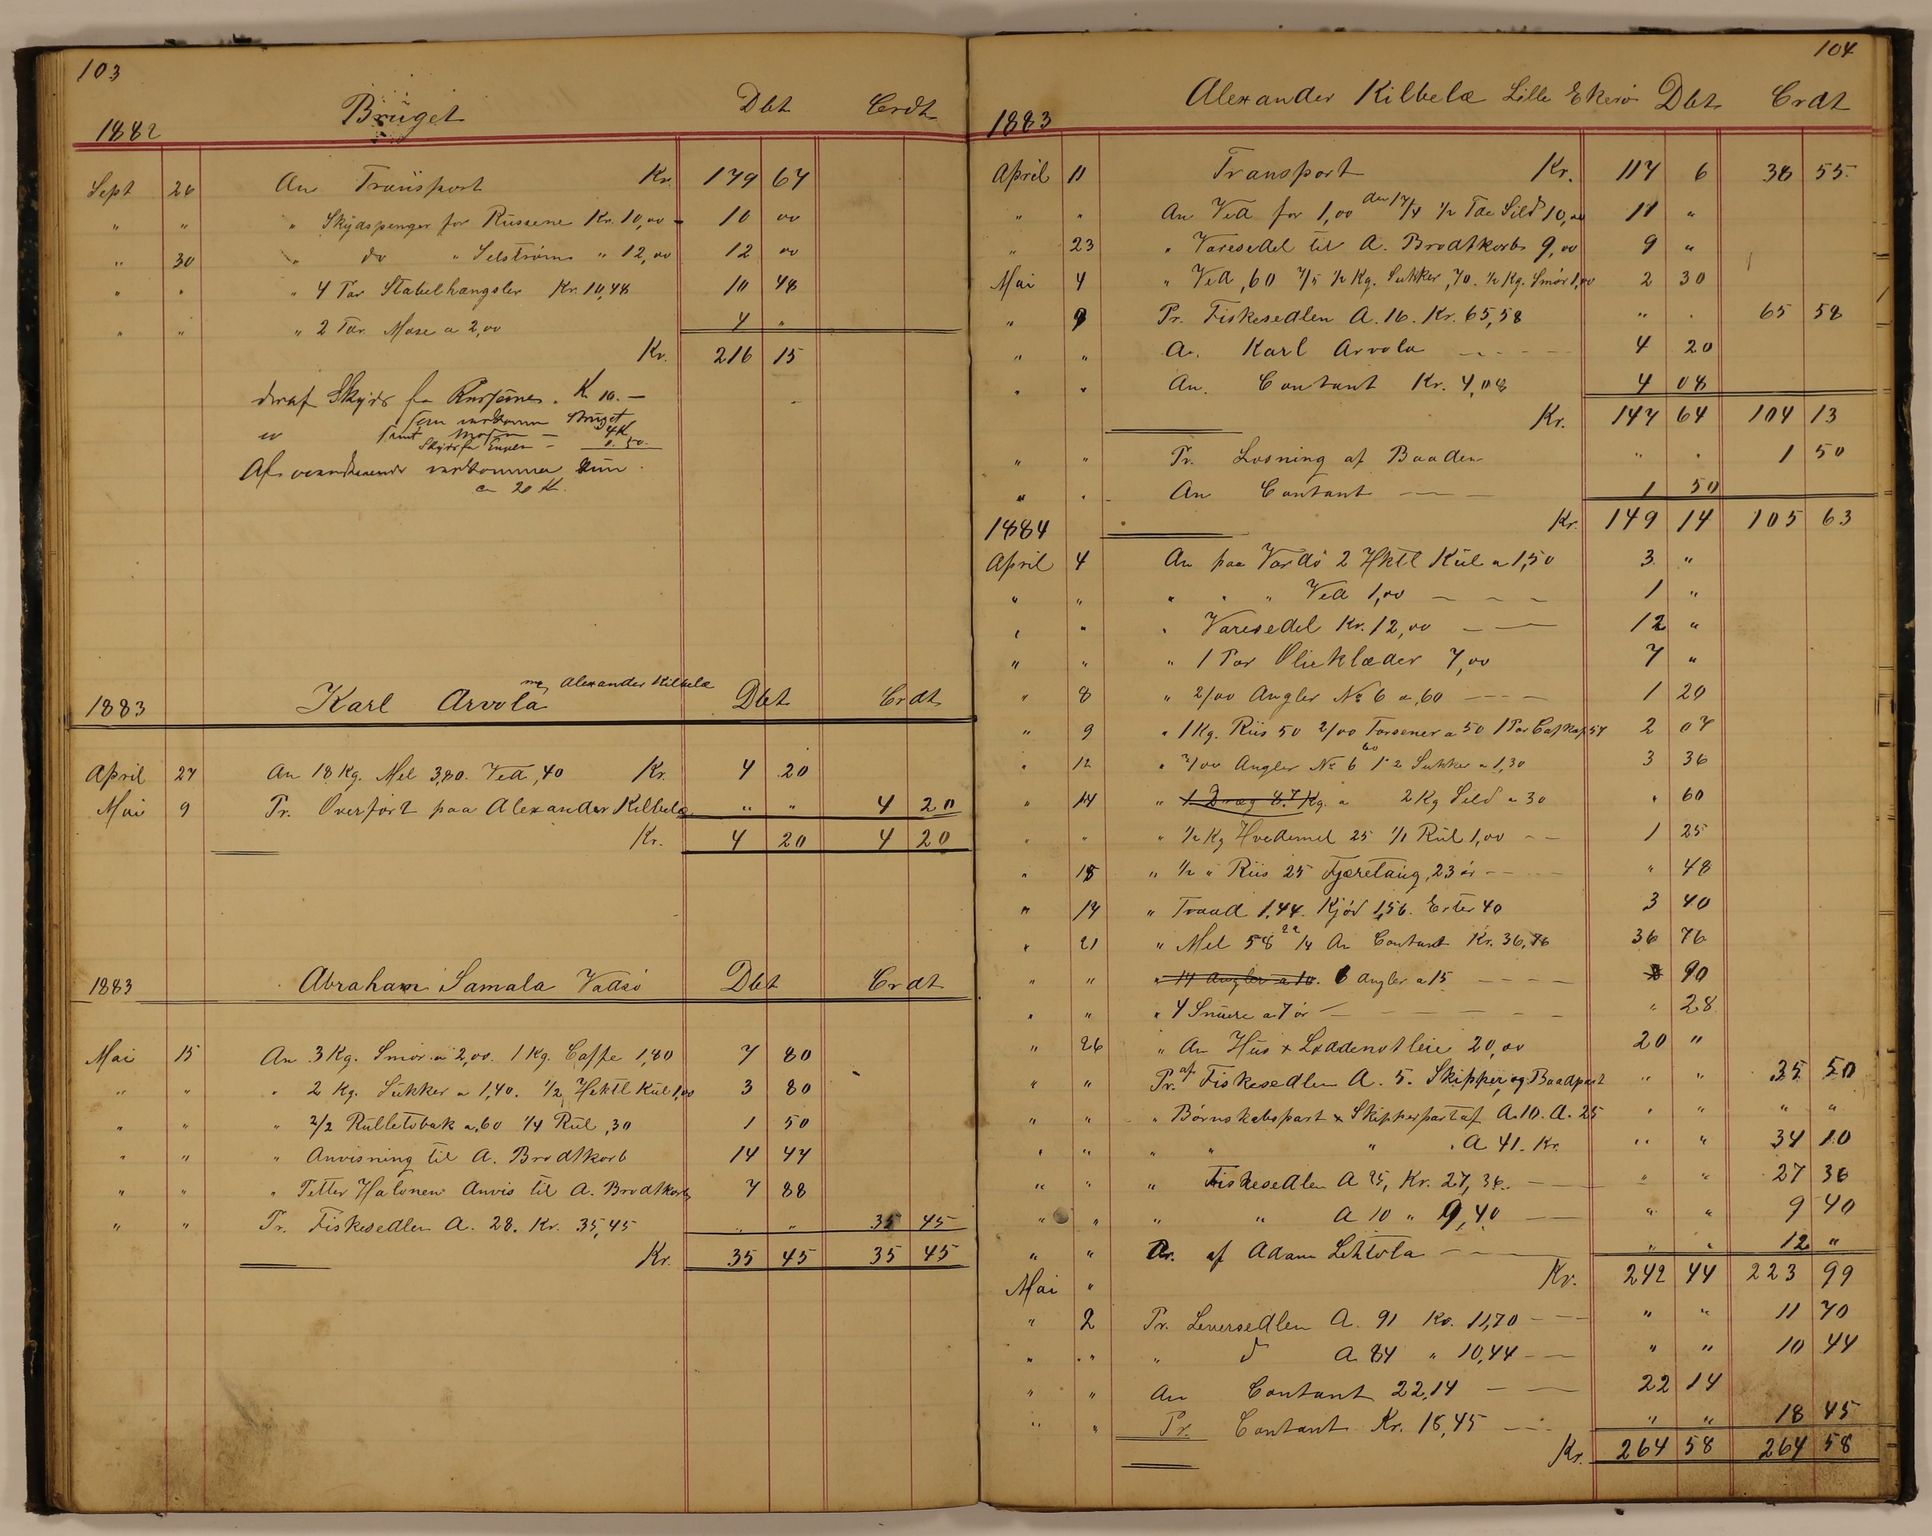 103
Bruget Dbt Crdt
1882
Sept 26 An Transport Kr. 179 67
" " " Skydspenger for Russene Kr. 10,00 - 10 00
" 30 " do " Selstrøm " 12,00 12 00
" " " 4 Par Stabelhængsler Kr. 10,48 10 48
" " " 2 Tdr. Mose a 2,00 4 "
Kr. 216 15
deraf Skyds fra Russerne. Kr. 10. —
som vedkommer Bruget
samt Mosen — 4 K
Skyds fra Enger —
Af ovenstaaende vedkommer kun
ca 20 Kr.
1883 Karl Arvola Alexander Kilbelæ Dbt Crdt
April 27 An 18 Kg. Mel 3,80. Ved ,40 Kr. 4 20
Mai 9 Pr. Overført paa Alexander Kilbelæ " " 4 20
Kr. 4 20 4 20
1883 Abraham Samala Vadsö Dbt Crdt
Mai 15 An 3 Kg. Smör a 2,00. 1 Kg. Caffe 1,80 7 80
" " " 2 Kg. Sukker a 1,40. 1/2 Hektl Kul 1,00 3 80
" " " 2/2 Rulletobak a ,60 1/4 Rul ,30 1 50
" " " Anvisning til A. Brodtkorb 14 47
" " " Petter Halonen Anvis til A. Brodtkorb 7 88
" " Pr. Fiskesedlen A. 28. Kr. 35,45 " " 35 45
Kr. 35 45 35 45
104
Alexander Kilbelæ Lille Ekerö Dbt Crdt
1883
April 11 Transport Kr. 117 6 38 55
" " An Ved for 1,00 den 17/4 1/2 Tde Sild 10,00 11 "
" 23 " Varesedel til A. Brodtkorb 9,00 9 "
Mai 4 " Ved ,60 7/5 1/2 Kg. Sukker ,70. 1/2 Kg. Smör 1,00 2 30
" 9 Pr. Fiskesedlen A. 16. Kr. 65,58 " " 65 58
" " An. Karl Arvola 4 20
" " An. Contant Kr. 4,08 4 08
Kr. 147 64 104 13
" " Pr. Losning af Baaden " " 1 50
" " An Contant 1 50
Kr. 149 14 105 63
1884
April 4 An paa Vardö 2 Hktl Kul a 1,50 3 "
" " " " " Ved 1,00 1 "
" " " Varesedel Kr. 12,00 12 "
" " " 1 Par Olieklæder 7,00 7 "
" 8 " 2/00 Angler No 6 a ,60 1 20
" 9 " 1 Kg. Riis 50 2/00 Forsener a 50 1 Par 57 2 07
" 12 " 3/00 Angler No 6 60 Sukker a 1,30 3 36
" 14 " 1 Dræg 8.7 Kg. a 2 Kg Sild a 30 " 60
" " " 1/2 Kg Hvedemel 25 1/1 Rul 1,00 1 25
" 15 " 1/2 " Riis 25 Tjæretaug, 23 ör " 48
" 17 " Traad 1,44. Kjöd 1,56. Erter 40 3 40
" 21 " Mel 58 22/4 An Contant Kr. 36,76 36 76
" " " 14 Angler a 10. 6 Angler a 15 90
" " " 4 Snure a 7 ör " 28
" 26 " An Hus & Loddenotleie 20,00 20 "
" " Pr. af Fiskesedlen A. 5. Skipper og Baadpart " " 35 50
" " " Börnskabspart & Skipperpart af A. 10. A. 25 " " " "
" " " " " A 41. Kr. " " 34 10
" " " Fiskesedlen A 25, Kr. 27,36. " " 27 36
" " " " A 10 " 9,40 " " 9 40
" " Pr. af Adam Lehtola " " 12 "
Kr. 242 44 223 99
Mai "
" 2 Pr. Leversedlen A. 91 Kr. 11,70 " " 11 70
" " " d A 84 " 10,44 " " 10 44
" " An Contant 22,14 22 14
" " Pr. Contant Kr. 18,45 " " 18 45
Kr. 264 58 264 58